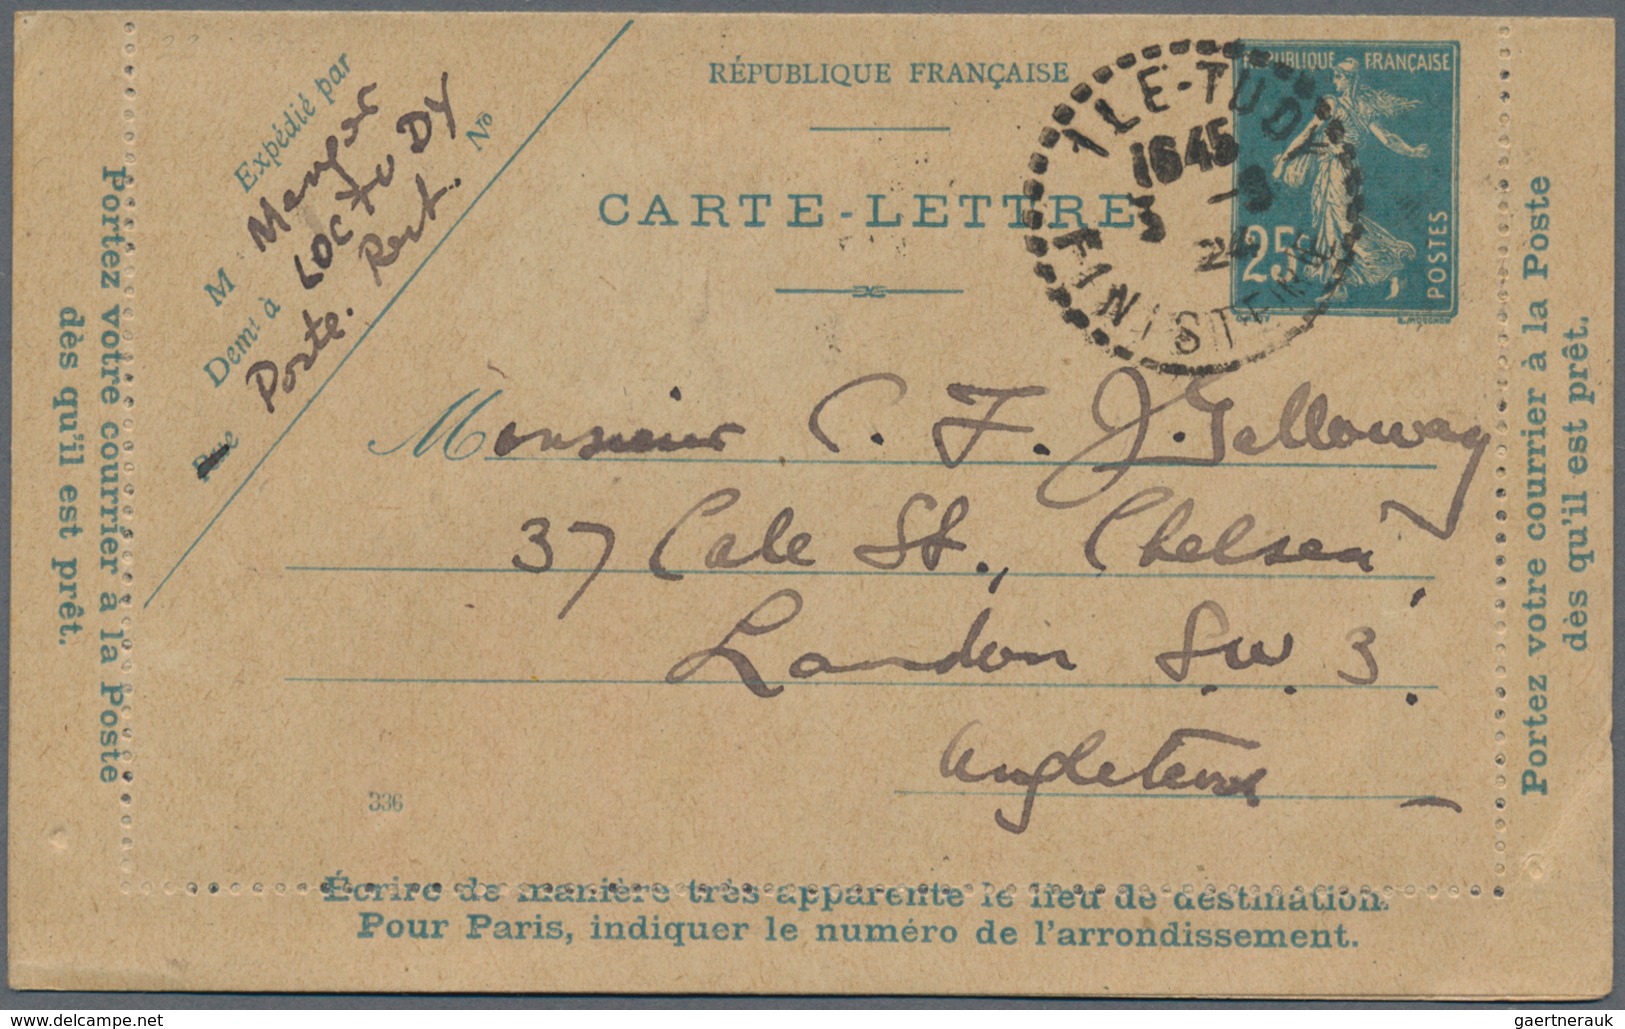 RÉPUBLIQUE FRANÇAISE
CARTE-LETTRE
Expédié par
M Menger
Demt à LOCTUDY
Rue Poste. Rest. No
ILE-TUDY
1645
3 -9
24
FINISTERE
REPUBLIQUE FRANÇAISE
25c
POSTES
Monsieur C. F. J. Galloway
37 Cale St., Chelsea,
London S.W. 3.
Angleterre
336
Écrire de manière très apparente le lieu de destination.
Pour Paris, indiquer le numéro de l'arrondissement.
Portez votre courrier à la Poste
dès qu'il est prêt.
Portez votre courrier à la Poste
dès qu'il est prêt.
gaertnerauk @ delcampe.net